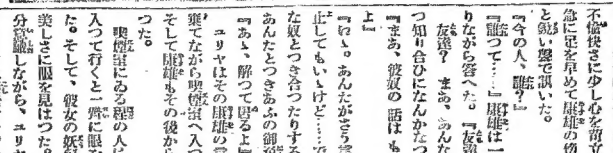 不愉快さに少し心を苛立
急に足を早めて康雄の傍
と鋭い聲で訊いた。
『今の人、誰?』
『誰つて……』康雄は一
りながら答へた。『友達
友達? まあ、あんな
つ知り合ひになんかなつ
『まあ、彼奴の話はも
よ』
『ねゝ。あんたがさう言
止してもいゝけど……で
な奴とつき合つたりする
あんたとつきあふの御
『あゝ、解つて居るよ』
ユリヤはその康雄の
棄てながら喫煙室へ入つ
そして康雄もその後から
つた。
喫煙室にゐる程の人は
入つて行くと一齊に眼を
た。そして、彼女の妖
美しさに眼を見はつた。
分意識しながら、ユリヤ